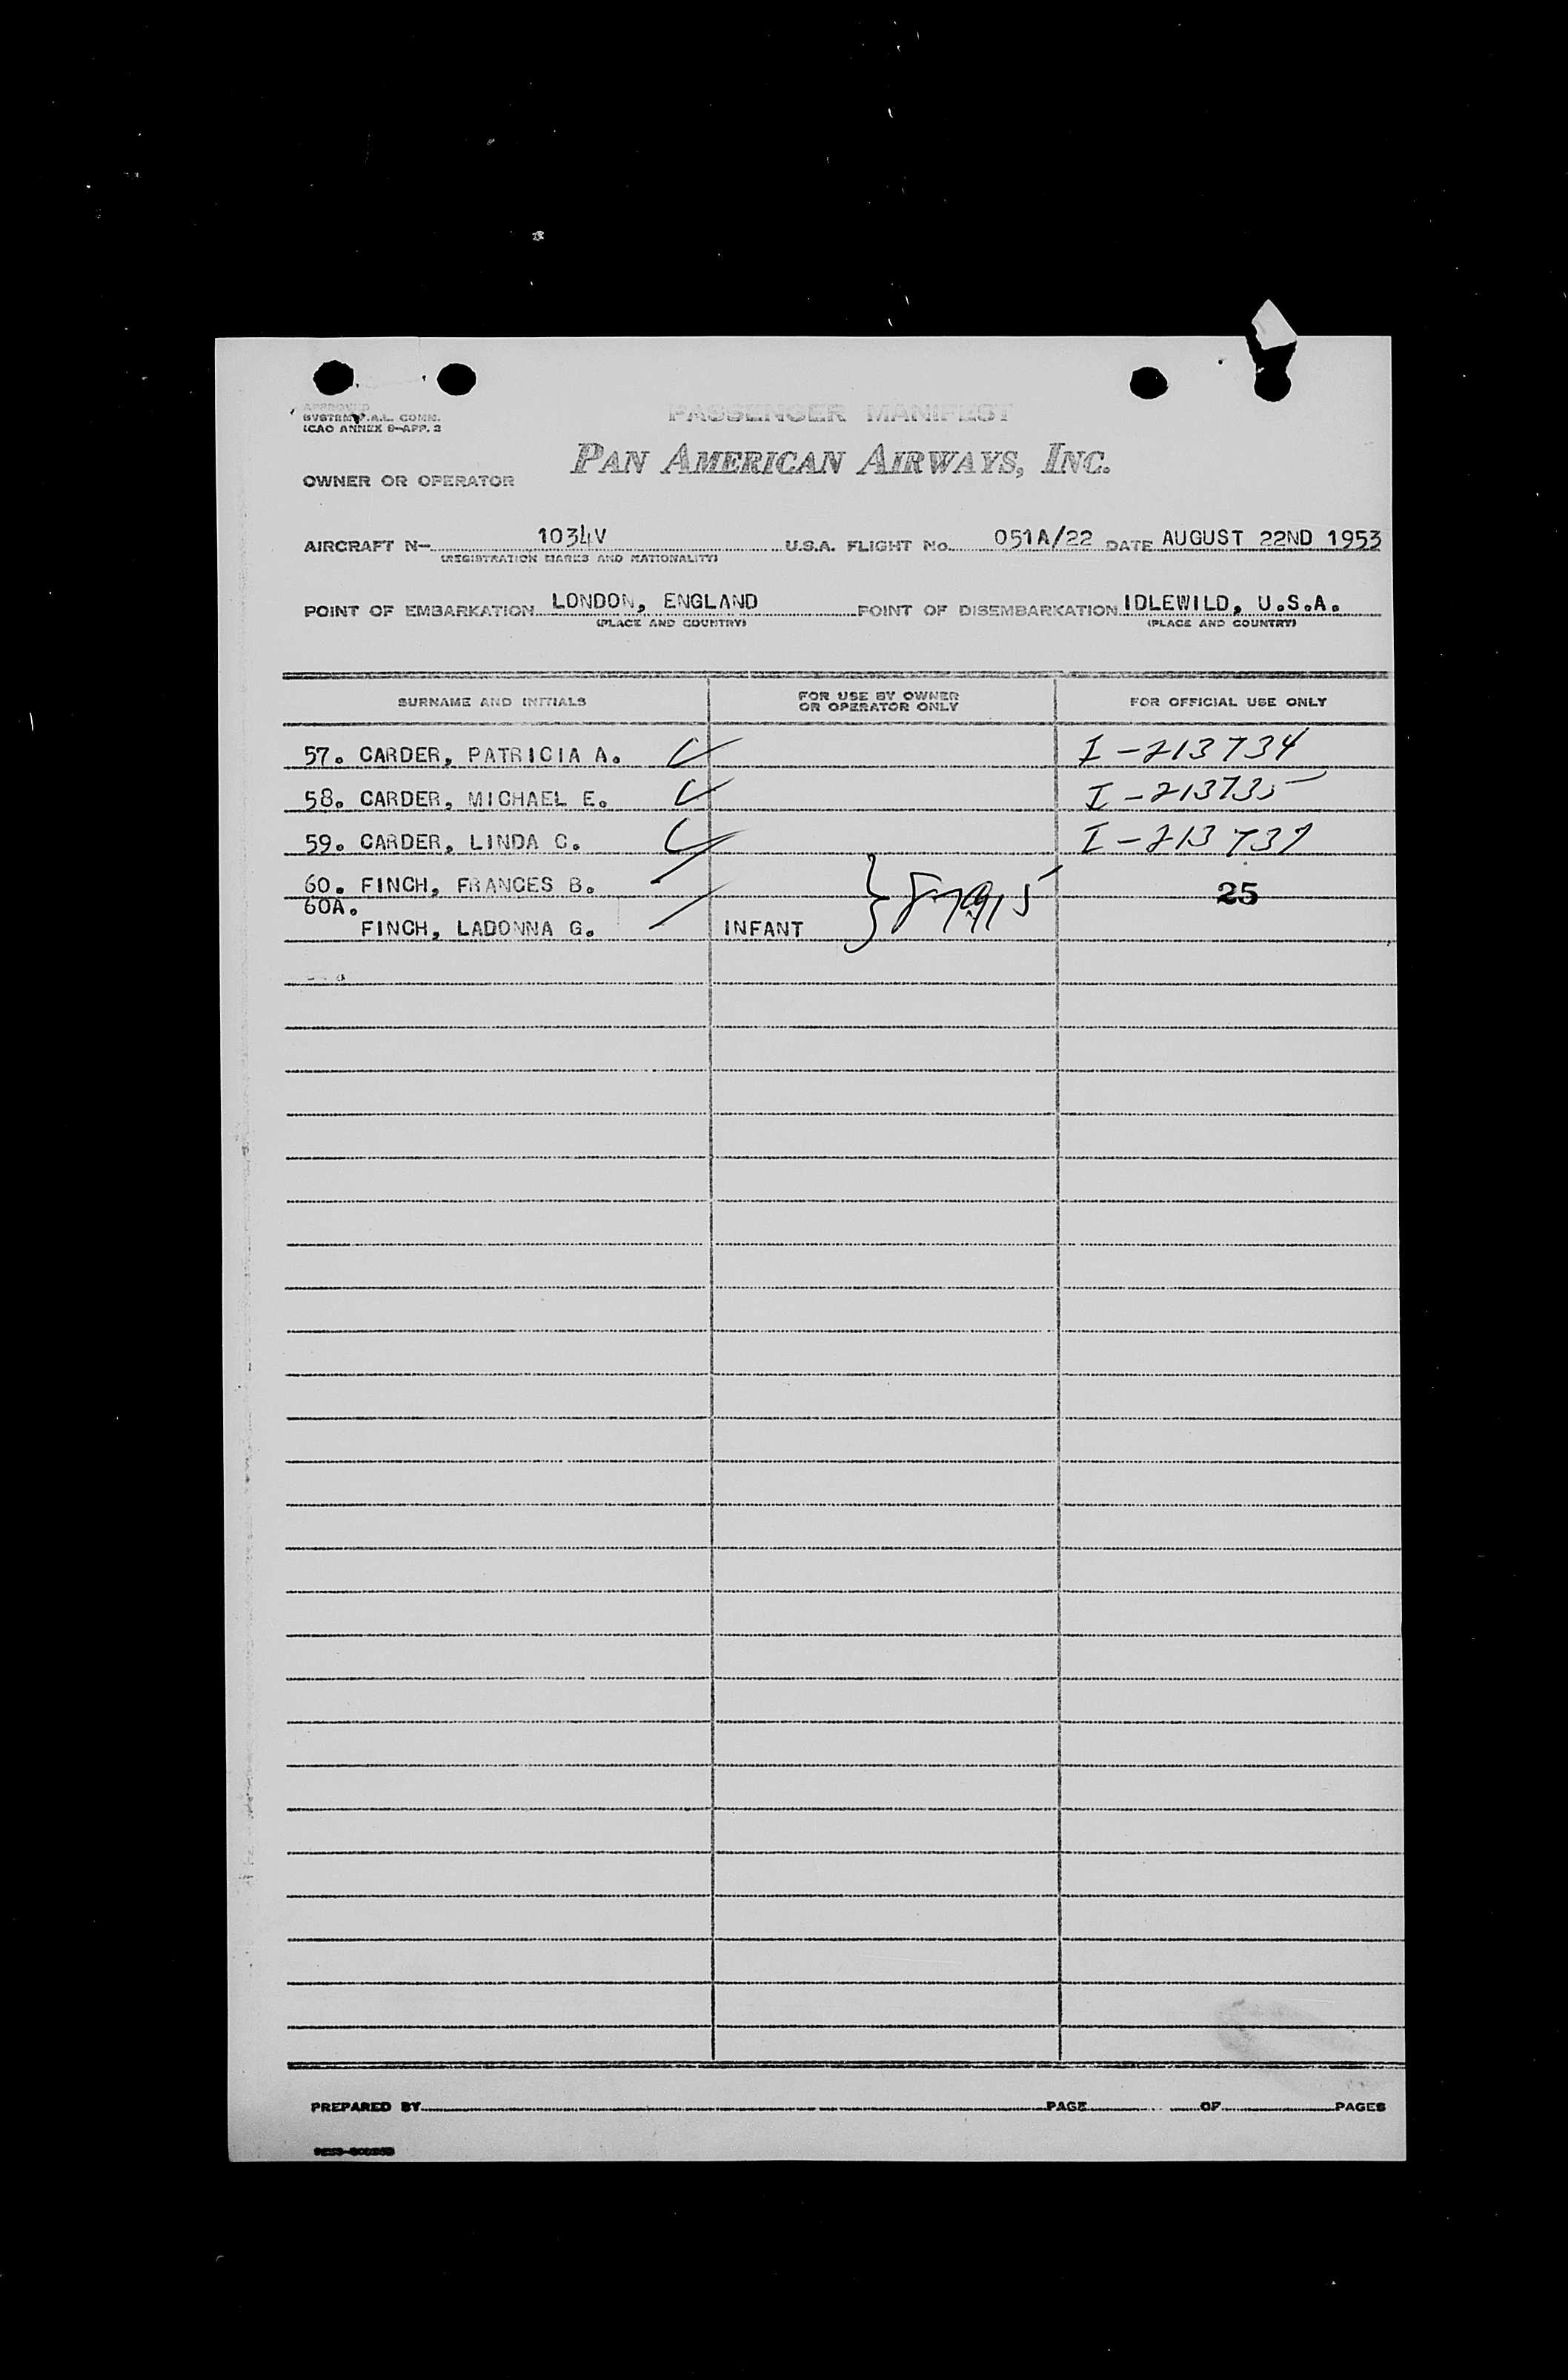 APPROVED
SYSTEM P.A.L. COMM.
ICAO ANNEX 9-APP. 3
PASSENGER MANIFEST
PAN AMERICAN AIRWAYS, INC.
OWNER OR OPERATOR
AIRCRAFT N- 1034V U.S.A. FLIGHT No. 051A/22 DATE AUGUST 22ND 1953
(REGISTRATION MARKS AND NATIONALITY)
POINT OF EMBARKATION LONDON, ENGLAND POINT OF DISEMBARKATION IDLEWILD, U.S.A.
(PLACE AND COUNTRY) (PLACE AND COUNTRY)
SURNAME AND INITIALS FOR USE BY OWNER OR OPERATOR ONLY FOR OFFICIAL USE ONLY
57. CARDER, PATRICIA A. I-213734
58. CARDER, MICHAEL E. I-213735
59. CARDER, LINDA C. I-213737
60. FINCH, FRANCES B. 25
60A.
FINCH, LADONNA G. INFANT
PREPARED BY PAGE OF PAGES